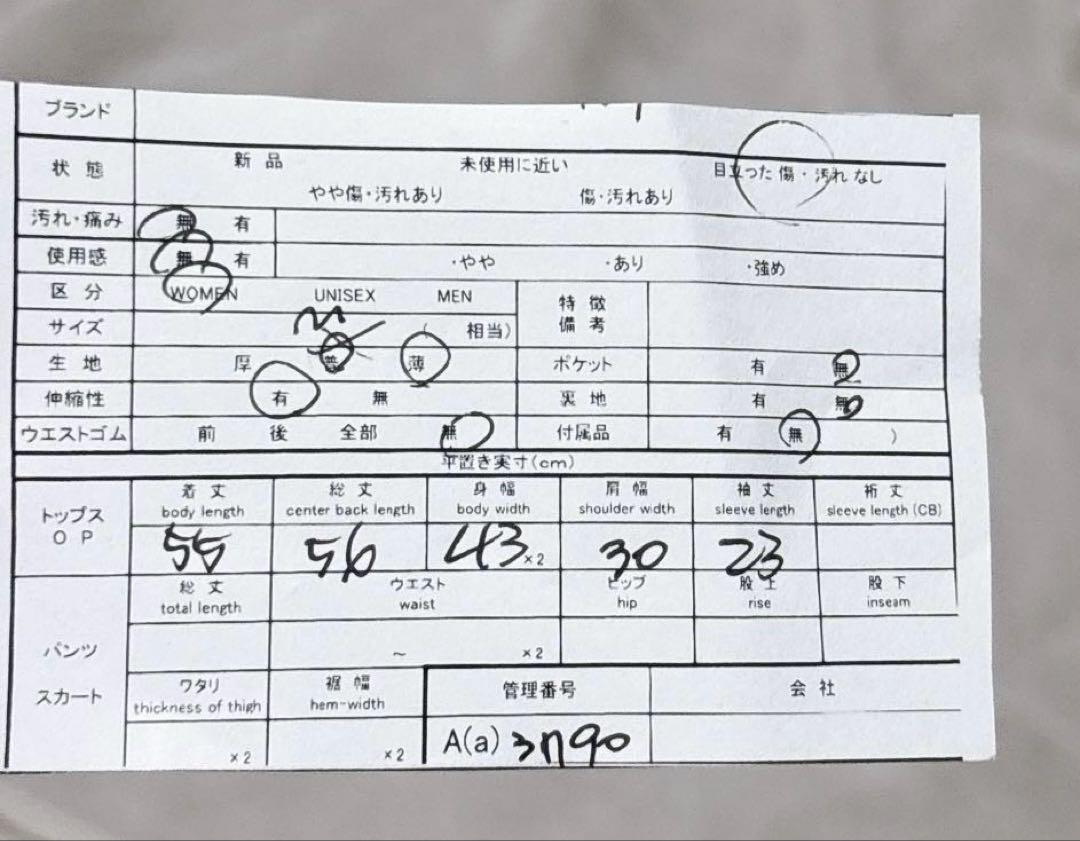 ブランド
状態 新品 未使用に近い 目立った傷・汚れなし
やや傷・汚れあり 傷・汚れあり
汚れ・痛み 無 有
使用感 無 有 ・やや ・あり ・強め
区分 WOMEN UNISEX MEN 特徴
備考
サイズ M ( 相当)
生地 厚 普 薄 ポケット 有 無
伸縮性 有 無 裏地 有 無
ウエストゴム 前 後 全部 無 付属品 有 無 )
平置き実寸(cm)
トップス
OP
着丈 総丈 身幅 肩幅 袖丈 裄丈
body length center back length body width shoulder width sleeve length sleeve length (CB)
55 56 43 ×2 30 23
パンツ
スカート
総丈 ウエスト ヒップ 股上 股下
total length waist hip rise inseam
~ ×2
ワタリ 裾幅 管理番号 会社
thickness of thigh hem-width
×2 ×2 A(a)